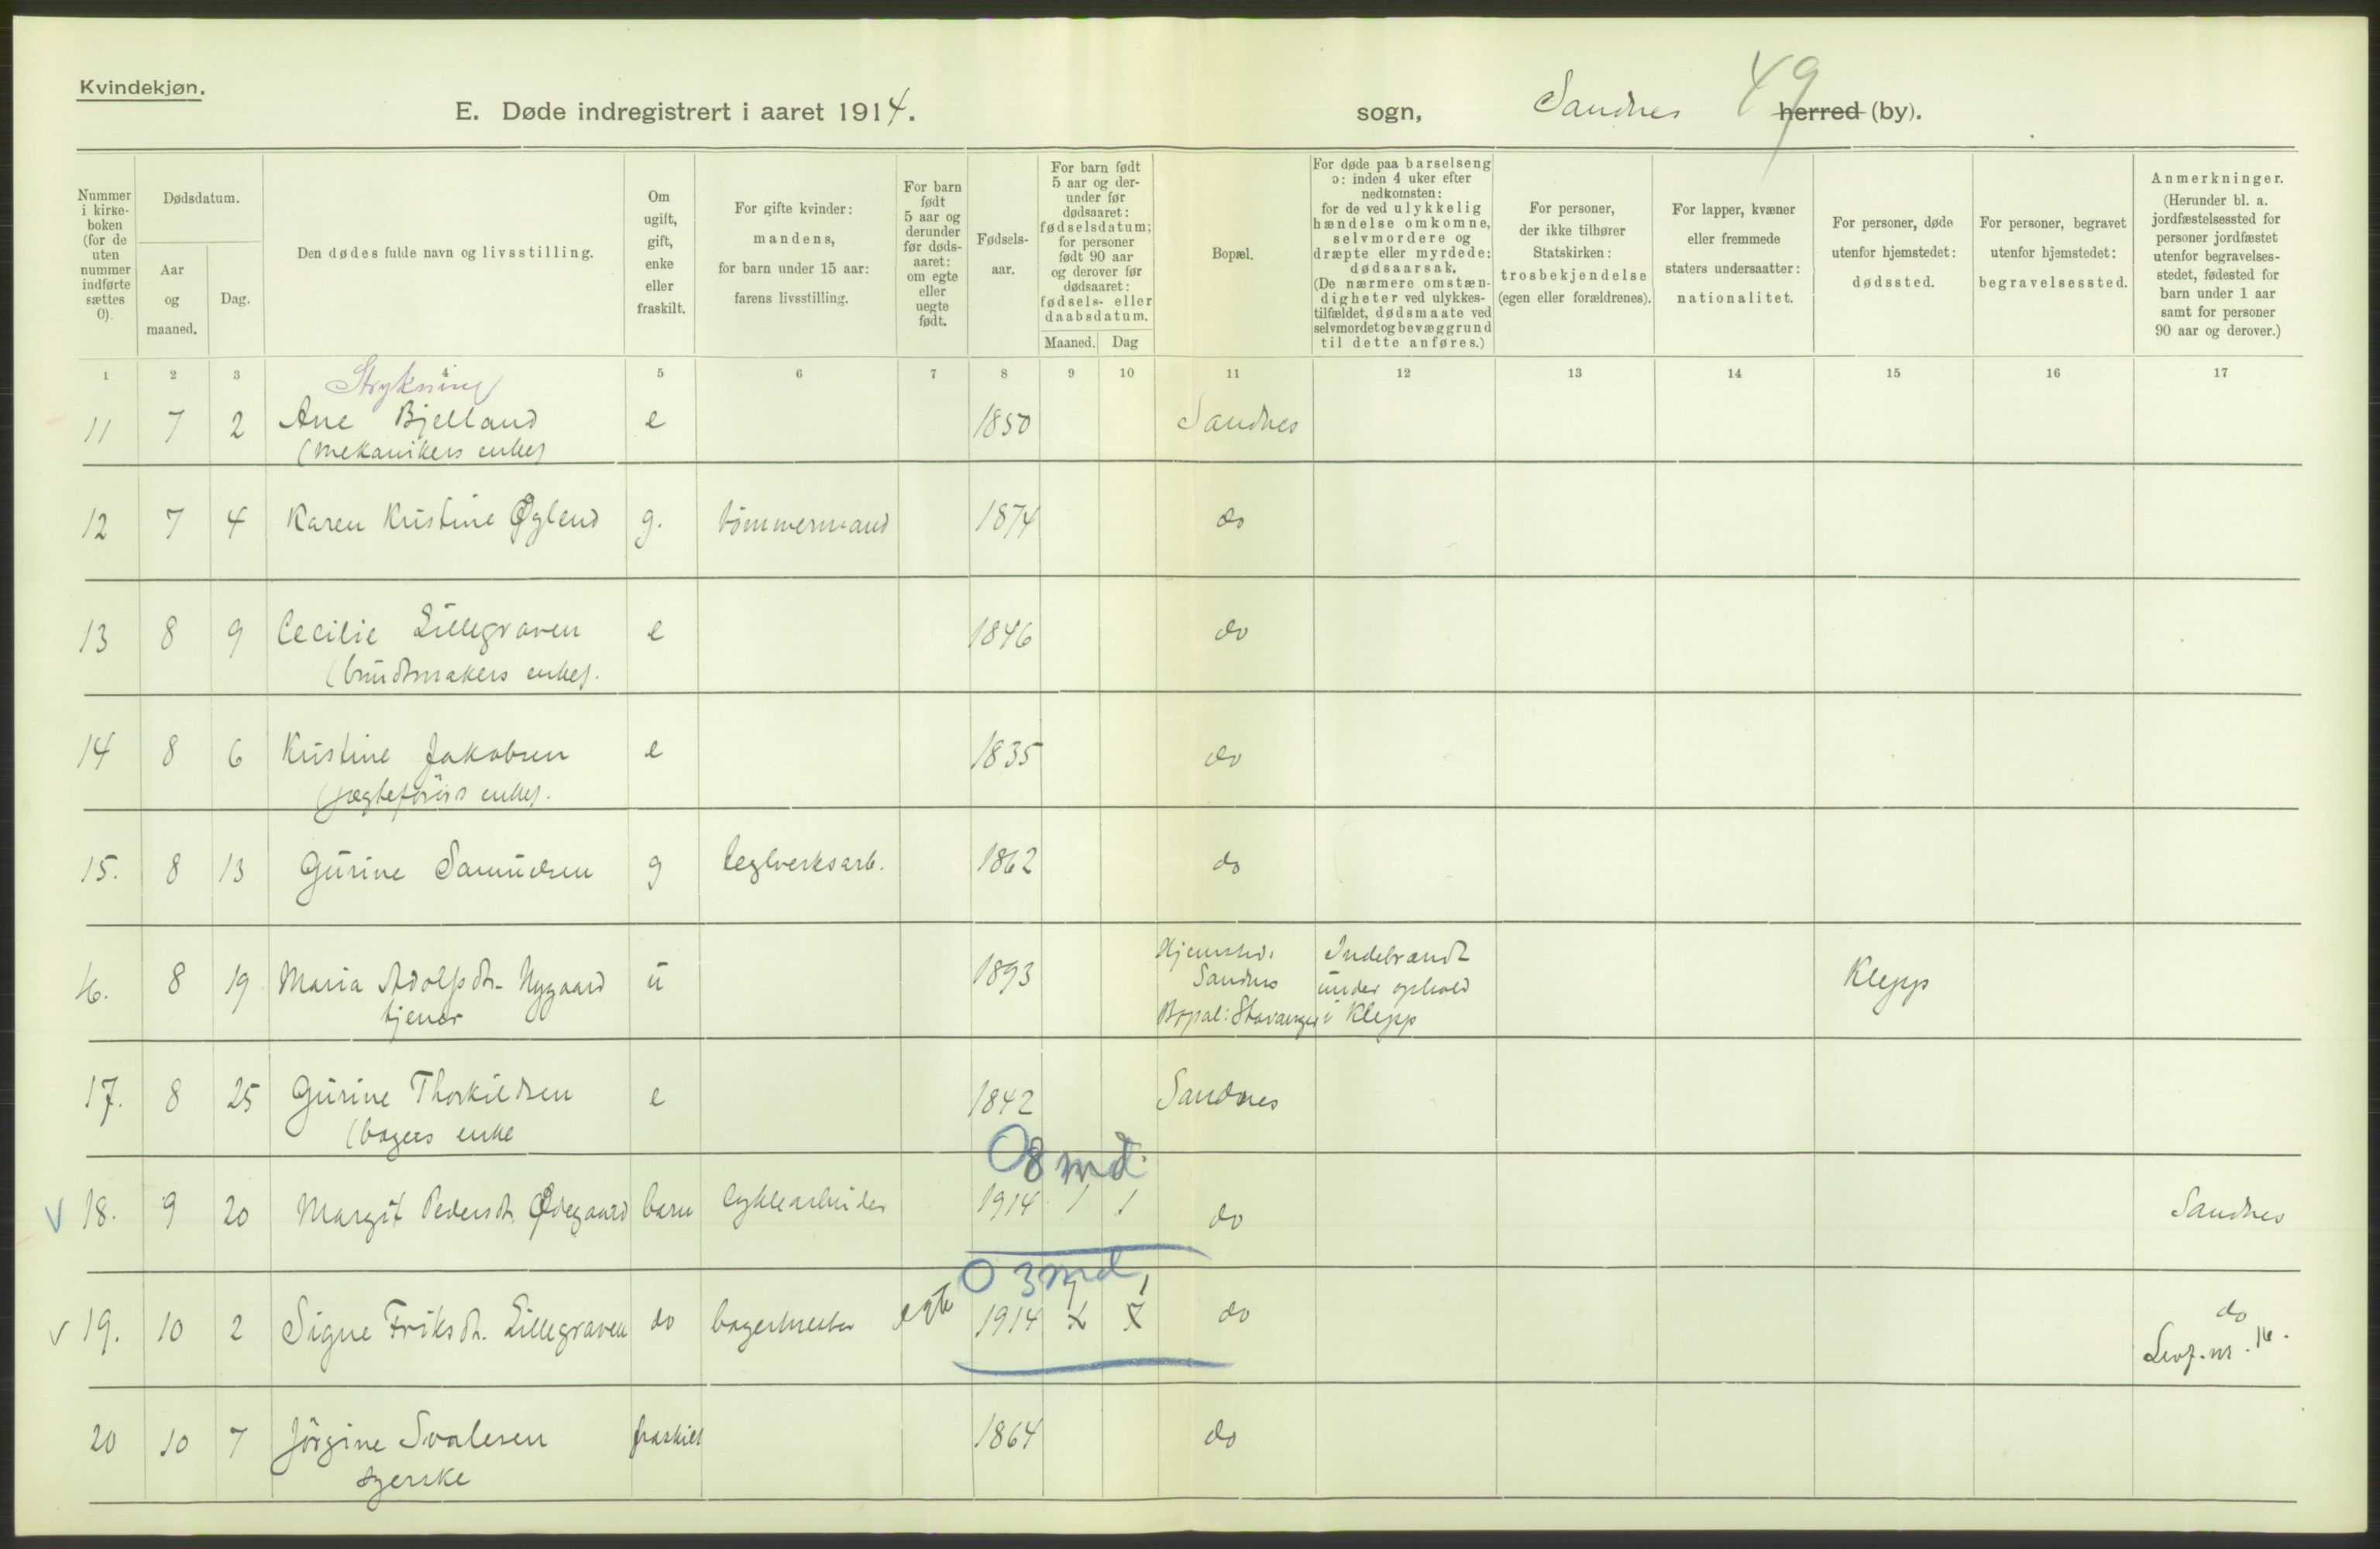 Kvindekjøn.
E. Døde indregistrert i aaret 1914.
sogn, Sandnes herred (by).
49
Nummer i kirkeboken (for de uten nummer indførte sættes 0).
Dødsdatum.
Aar og maaned.
Dag.
Den dødes fulde navn og livsstilling.
Om ugift, gift, enke eller fraskilt.
For gifte kvinder: mandens, for barn under 15 aar: farens livsstilling.
For barn født 5 aar og derunder før dødsaaret: om egte eller uegte født.
Fødselsaar.
For barn født 5 aar og derunder før dødsaaret: fødselsdatum; for personer født 90 aar og derover før dødsaaret: fødsels- eller daabsdatum.
Maaned. Dag
Bopæl.
For døde paa barselseng ɔ: inden 4 uker efter nedkomsten: for de ved ulykkelig hændelse omkomne, selvmordere og dræpte eller myrdede: dødsaarsak. (De nærmere omstændigheter ved ulykkestilfældet, dødsmaate ved selvmordet og bevæggrund til dette anføres.)
For personer, der ikke tilhører Statskirken: trosbekjendelse (egen eller forældrenes).
For lapper, kvæner eller fremmede staters undersaatter: nationalitet.
For personer, døde utenfor hjemstedet: dødssted.
For personer, begravet utenfor hjemstedet: begravelsessted.
Anmerkninger. (Herunder bl. a. jordfæstelsessted for personer jordfæstet utenfor begravelsesstedet, fødested for barn under 1 aar samt for personer 90 aar og derover.)
1 2 3 4 5 6 7 8 9 10 11 12 13 14 15 16 17
Strykning
11 7 2 Ane Bjelland e 1850 Sandnes
(mekanikers enke)
12 7 4 Karen Kristine Øglend g. tömmermand 1874 do
13 8 9 Cecilie Lillegraven e 1846 do
(bundtmakers enke).
14 8 6 Kristine Jakobsen e 1835 do
(jægteförers enke).
15. 8 13 Gurine Samuelsen g teglverksarb. 1862 do
16. 8 19 Maria Adolfsdtr. Nygaard u 1893 Hjemsted: Indebrændt Klepp
tjener Sandnes under ophold
Bopæl: Stavanger i Klepp
17. 8 25 Gurine Thorkildsen e 1842 Sandnes
(bagers enke
0 8 md.
V 18. 9 20 Margit Pedersdtr. Ødegaard barn cyklearbeider 1914 1 1 do Sandnes
0 3 md
V 19. 10 2 Signe Eriksdtr. Lillegraven do bagermester egte 1914 do do
Levf. nr. 16.
20 10 7 Jörgine Svalesen fraskilt 1864 do
syerske